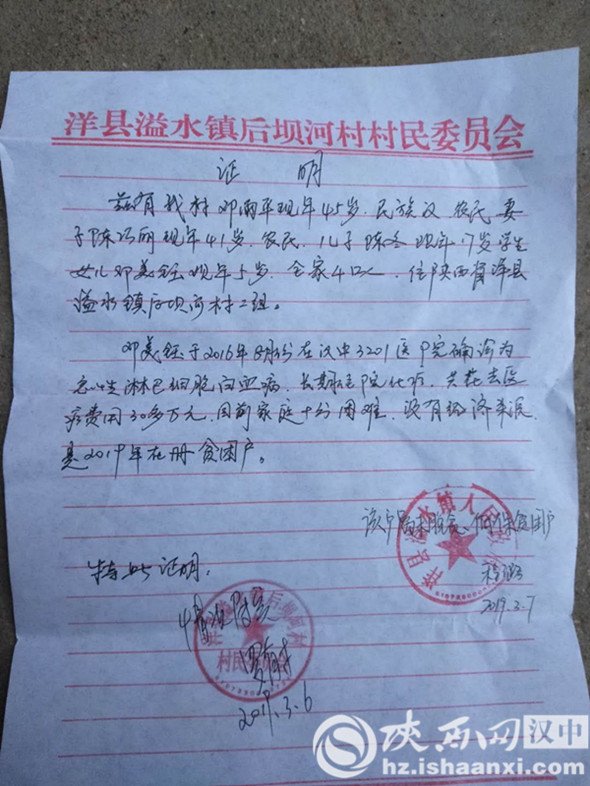 洋县溢水镇后坝河村村民委员会
证 明
兹有我村邓雨平现年45岁,民族汉,农民,妻
子陈巧丽现年41岁,农民,儿子陈冬现年17岁学生
女儿邓美钰现年5岁,全家4口人,住陕西省洋县
溢水镇后坝河村二组。
邓美钰于2016年8月份在汉中3201医院确诊为
急性淋巴细胞白血病,长期住院化疗,共花去医
疗费用30多万元,目前家庭十分困难,没有经济来源
是2014年在册贫困户。
该户属未脱贫、低保贫困户
2019.3.7
特此证明。
情况属实
2019.3.6
洋县溢水镇人民
后坝河村
村民
陕西网 汉中
hz.ishaanxi.com